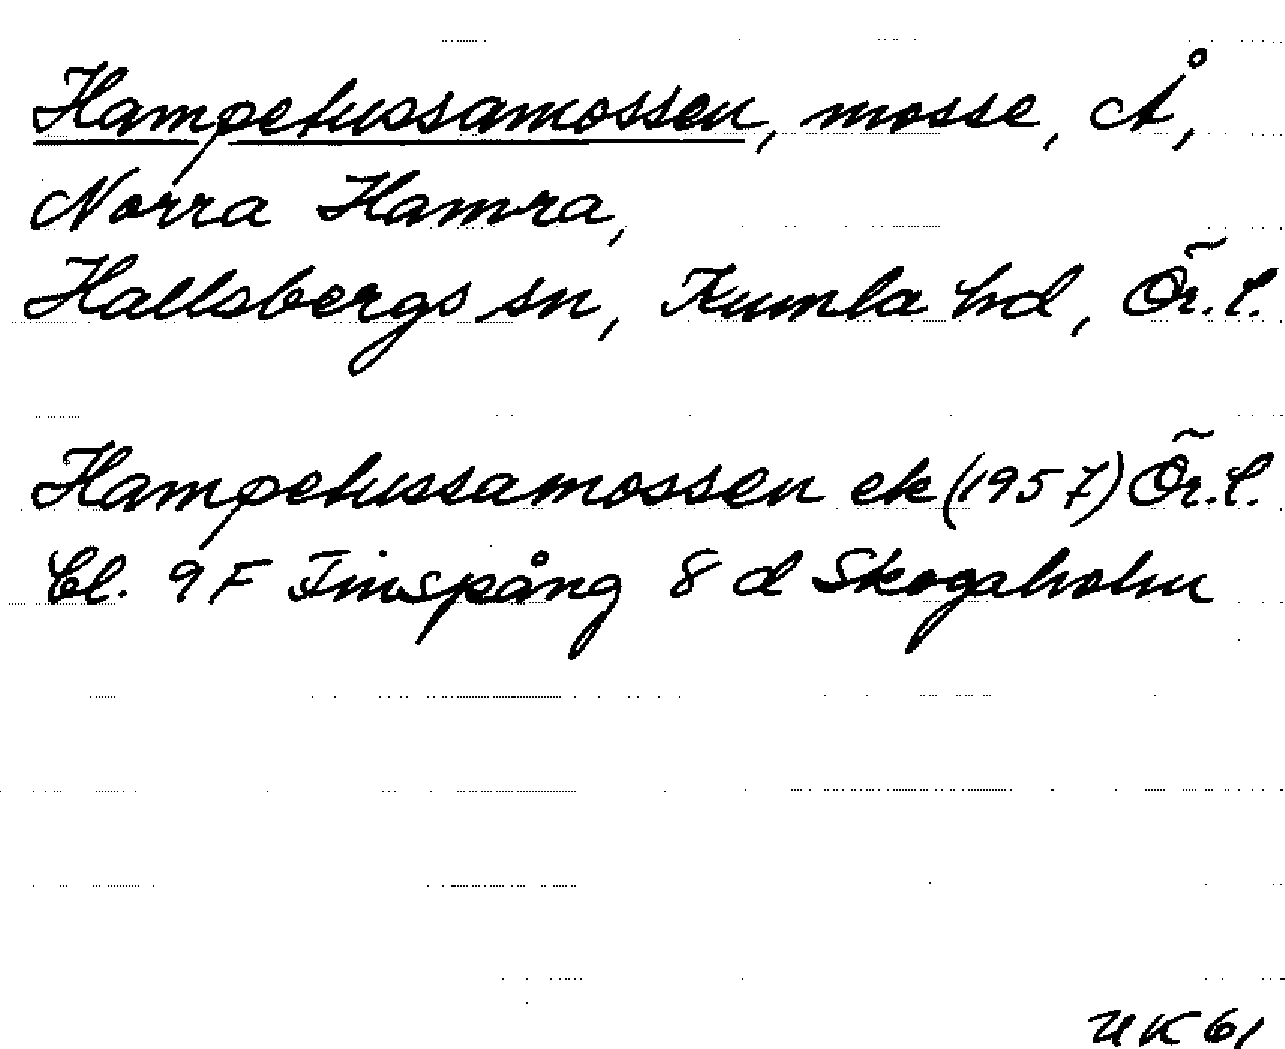 Hampetussamossen, mosse, Å,
Norra Hamra,
Hallsbergs sn, Kumla hd, Ör.l.
Hampetussamossen ek (1957) Ör.l.
bl. 9 F Finspång 8 d Skogaholm
UK 61